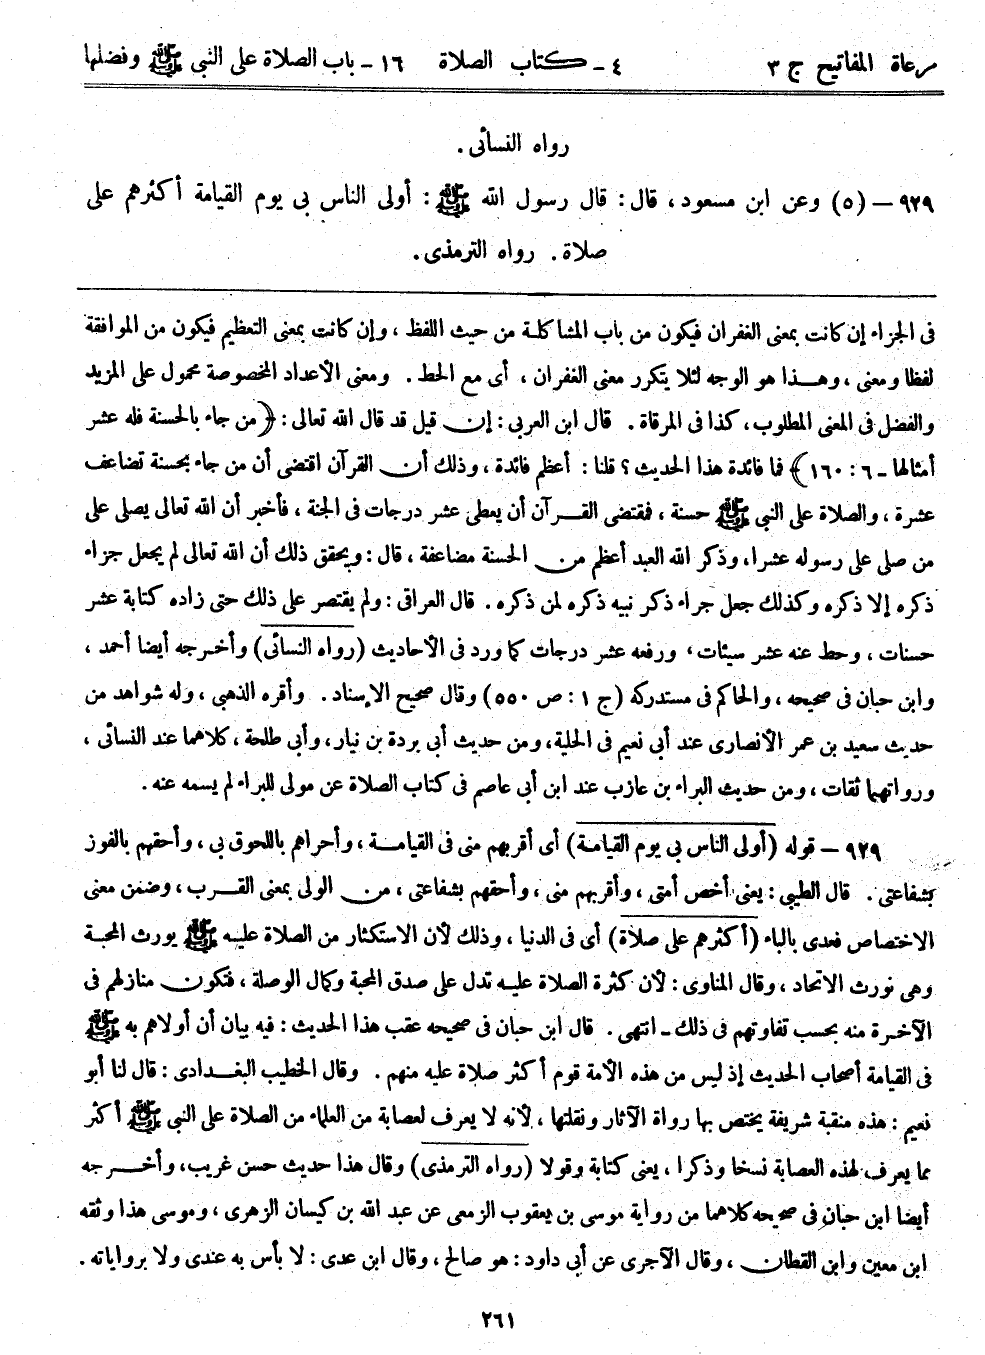 مرعاة المفاتيح ج ٣ ٤ ـ كتاب الصلاة ١٦ ـ باب الصلاة على النبي ﷺ وفضلها
رواه النسائى .
٩٢٩ — (٥) وعن ابن مسعود ، قال : قال رسول الله ﷺ : أولى الناس بى يوم القيامة أكثرهم على
صلاة . رواه الترمذى .
فى الجزاء إن كانت بمعنى الغفران فيكون من باب المشاكلة من حيث اللفظ ، وإن كانت بمعنى التعظيم فيكون من الموافقة
لفظا ومعنى ، وهذا هو الوجه لئلا يتكرر معنى الغفران ، أى مع الحط . ومعنى الأعداد المخصوصة محمول على المزيد
والفضل فى المعنى المطلوب ، كذا فى المرقاة . قال ابن العربى : إن قيل قد قال الله تعالى : ﴿ من جاء بالحسنة فله عشر
أمثالها ـ ٦ : ١٦٠ ﴾ فما فائدة هذا الحديث ؟ قلنا : أعظم فائدة ، وذلك أن القرآن اقتضى أن من جاء بحسنة تضاعف
عشرة ، والصلاة على النبي ﷺ حسنة ، فمقتضى القرآن أن يعطى عشر درجات فى الجنة ، فأخبر أن الله تعالى يصلى على
من صلى على رسوله عشرا ، وذكر الله العبد أعظم من الحسنة مضاعفة ، قال : ويحقق ذلك أن الله تعالى لم يجعل جزاء
ذكره إلا ذكره وكذلك جعل جزاء ذكر نبيه ذكره لمن ذكره . قال العراقى : ولم يقتصر على ذلك حتى زاده كتابة عشر
حسنات ، وحط عنه عشر سيئات ، ورفعه عشر درجات كما ورد فى الأحاديث (رواه النسائى) وأخرجه أيضا أحمد ،
وابن حبان فى صحيحه ، والحاكم فى مستدركه (ج ١ : ص ٥٥٠) وقال صحيح الإسناد . وأقره الذهبى ، وله شواهد من
حديث سعيد بن عمر الأنصارى عند أبى نعيم فى الحلية ، ومن حديث أبى بردة بن نيار ، وأبى طلحة ، كلاهما عند النسائى ،
ورواتهما ثقات ، ومن حديث البراء بن عازب عند ابن أبى عاصم فى كتاب الصلاة عن مولى للبراء لم يسمه عنه .
٩٢٩ — قوله (أولى الناس بى يوم القيامة) أى أقربهم منى فى القيامة ، وأحراهم باللحوق بى ، وأحقهم بالفوز
بشفاعتى . قال الطيبى : يعنى أخص أمتى ، وأقربهم منى ، وأحقهم بشفاعتى ، من الولى بمعنى القرب ، وضمن معنى
الاختصاص فعدى بالباء (أكثرهم على صلاة) أى فى الدنيا ، وذلك لأن الاستكثار من الصلاة عليه ﷺ يورث المحبة
وهى تورث الاتحاد ، وقال المناوى : لأن كثرة الصلاة عليه تدل على صدق المحبة وكمال الوصلة ، فتكون منازلهم فى
الآخرة منه بحسب تفاوتهم فى ذلك ـ انتهى . قال ابن حبان فى صحيحه عقب هذا الحديث : فيه بيان أن أولاهم به ﷺ
فى القيامة أصحاب الحديث إذ ليس من هذه الأمة قوم أكثر صلاة عليه منهم . وقال الخطيب البغدادى : قال لنا أبو
نعيم : هذه منقبة شريفة يختص بها رواة الآثار ونقلتها ، لأنه لا يعرف لعصابة من العلماء من الصلاة على النبي ﷺ أكثر
مما يعرف لهذه العصابة نسخا وذكرا ، يعنى كتابة وقولا (رواه الترمذى) وقال هذا حديث حسن غريب ، وأخرجه
أيضا ابن حبان فى صحيحه كلاهما من رواية موسى بن يعقوب الزمعى عن عبد الله بن كيسان الزهرى ، وموسى هذا وثقه
ابن معين وابن القطان ، وقال الآجرى عن أبى داود : هو صالح ، وقال ابن عدى : لا بأس به عندى ولا برواياته .
٢٦١